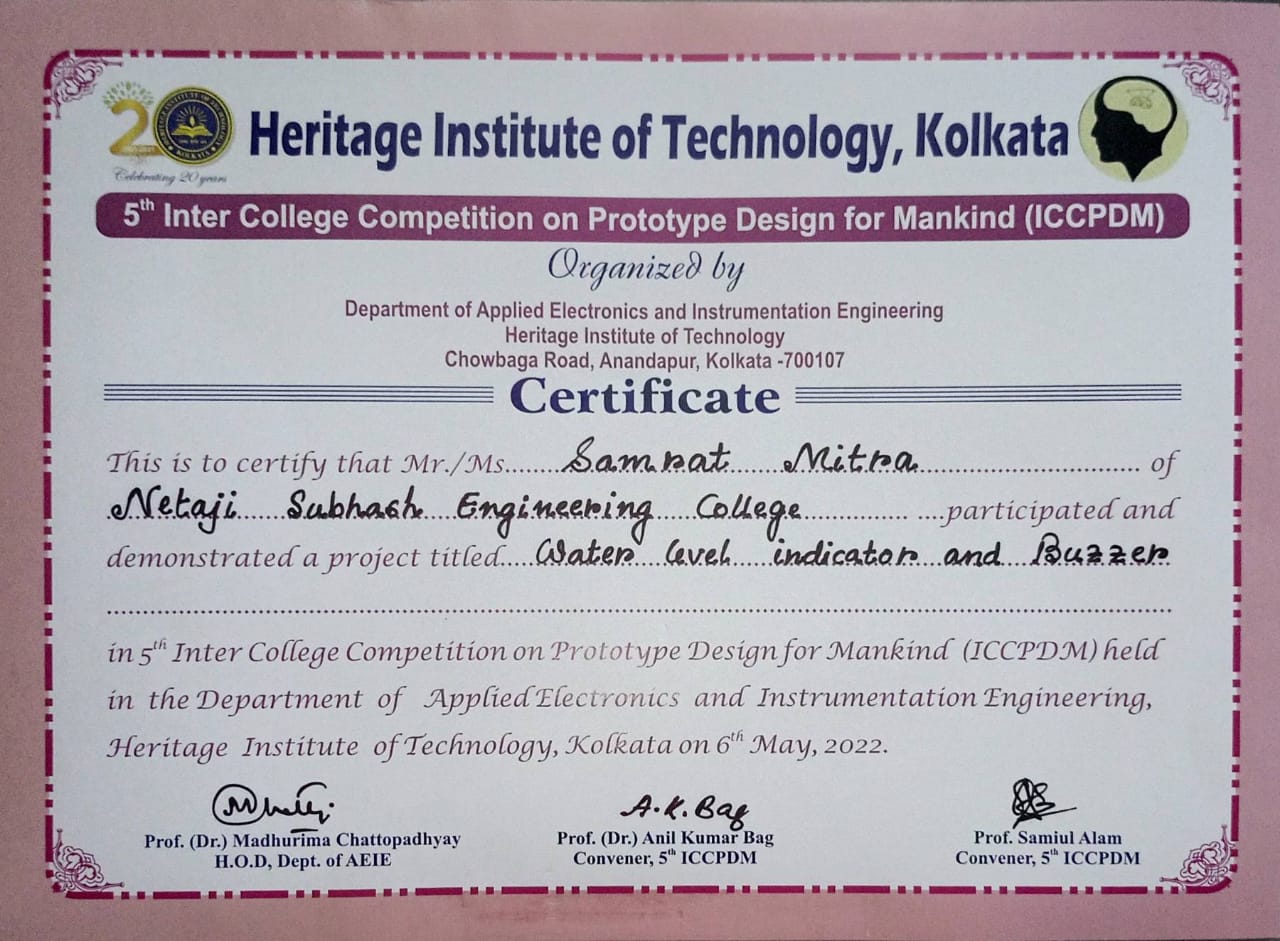 20
HERITAGE INSTITUTE OF TECHNOLOGY
KOLKATA
Celebrating 20 years
Heritage Institute of Technology, Kolkata
5th Inter College Competition on Prototype Design for Mankind (ICCPDM)
Organized by
Department of Applied Electronics and Instrumentation Engineering
Heritage Institute of Technology
Chowbaga Road, Anandapur, Kolkata -700107
Certificate
This is to certify that Mr./Ms. Samrat Mitra of
Netaji Subhash Engineering College participated and
demonstrated a project titled Water level indicator and Buzzer
in 5th Inter College Competition on Prototype Design for Mankind (ICCPDM) held
in the Department of Applied Electronics and Instrumentation Engineering,
Heritage Institute of Technology, Kolkata on 6th May, 2022.
A.K. Bag
Prof. (Dr.) Madhurima Chattopadhyay Prof. (Dr.) Anil Kumar Bag Prof. Samiul Alam
H.O.D, Dept. of AEIE Convener, 5th ICCPDM Convener, 5th ICCPDM